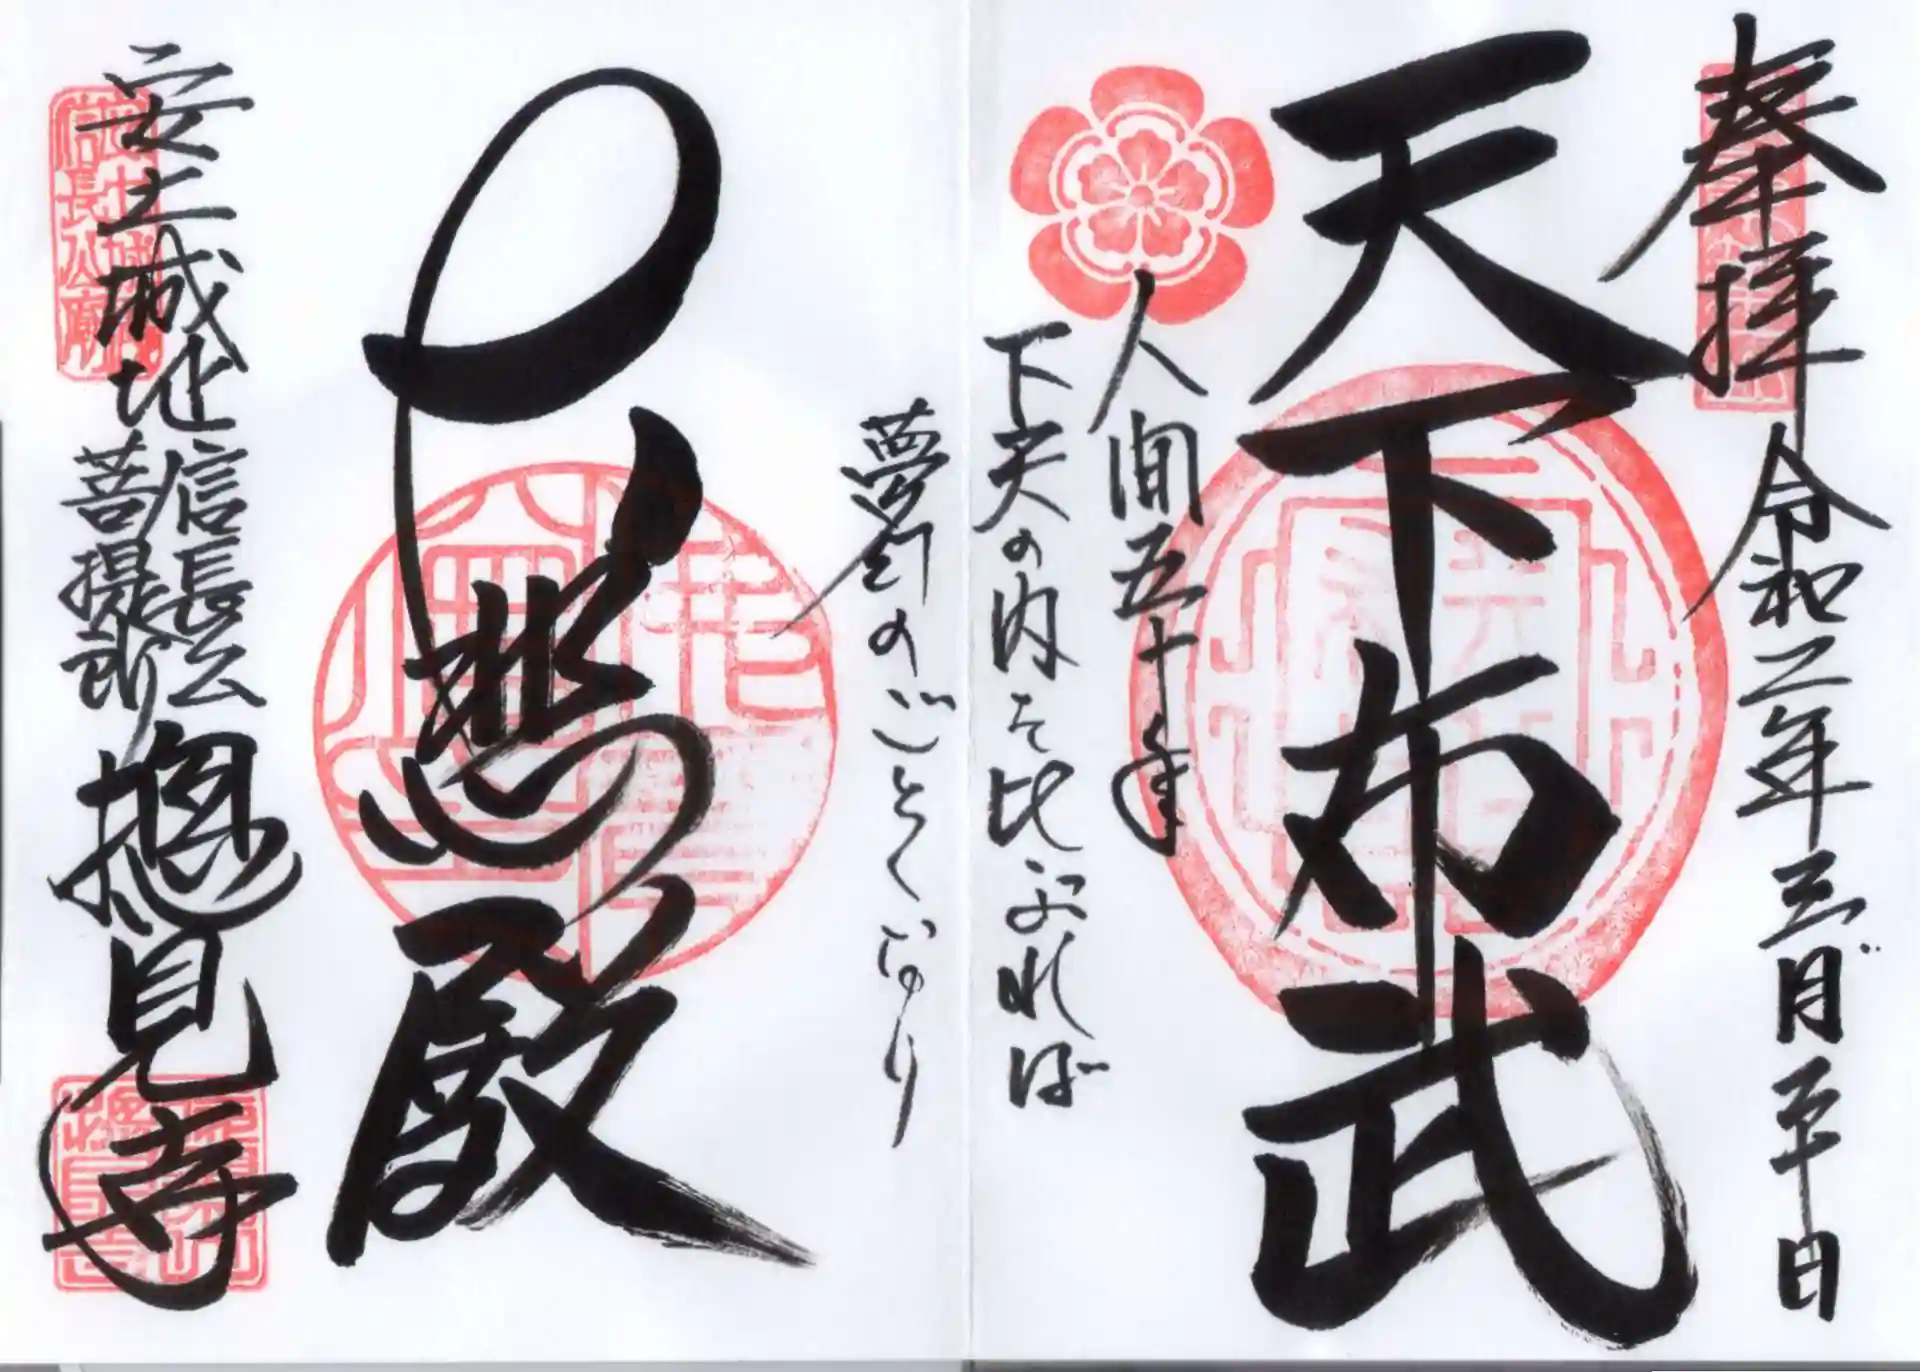 奉拝 令和二年三月
天下布武
人間五十年
下天の内を比ぶれば
夢幻のごとくなり
殿
安土城址
信長公
菩提所
摠見寺
信長公廟